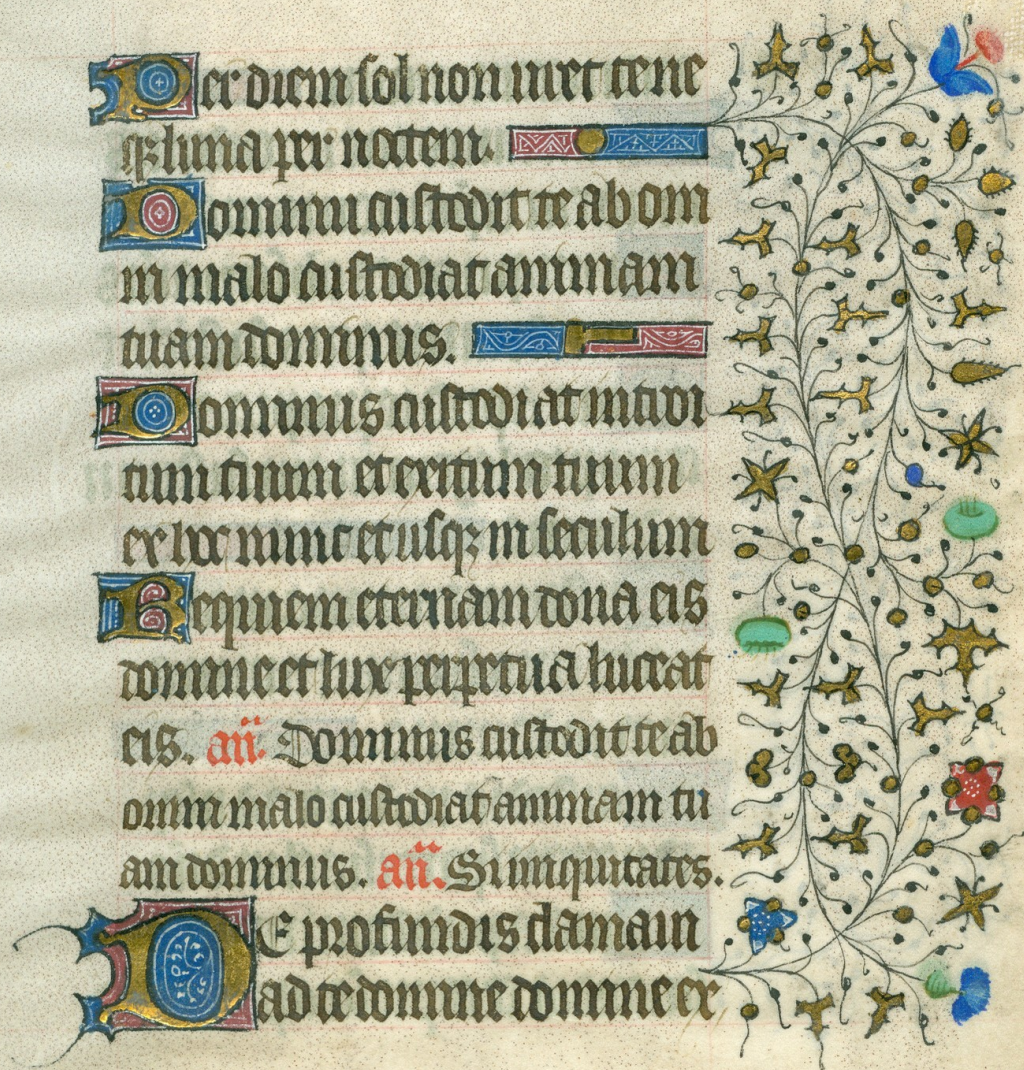 Per diem sol non uret te ne
qꝫ luna per noctem.
Dominus custodit te ab om
ni malo custodiat animam
tuam dominus.
Dominus custodiat introi
tum tuum et exitum tuum
ex hoc nunc et usqꝫ in seculum
Requiem eternam dona eis
domine et lux perpetua luceat
eis. an̄. Dominus custodit te ab
omni malo custodiat animam tu
am dominus. an̄. Si iniquitates.
DE profundis clamaui
ad te domine domine ex